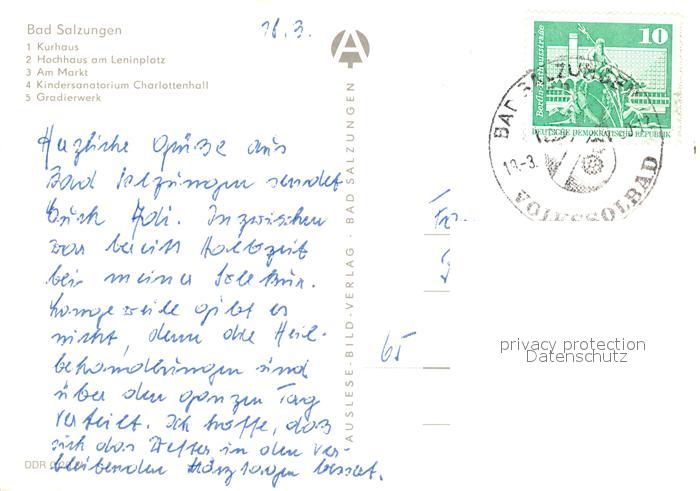 Bad Salzungen
1 Kurhaus
2 Hochhaus am Leninplatz
3 Am Markt
4 Kindersanatorium Charlottenhall
5 Gradierwerk
18.3.
Herzliche Grüße aus
Bad Salzungen sendet
Euch Adi. Inzwischen
war bereits Halbzeit
bei meiner Solekur.
Langeweile gibt es
nicht, denn die Heil-
behandlungen sind
über den ganzen Tag
verteilt. Ich hoffe, daß
sich das Wetter in den ver-
bleibenden Märztagen bessert.
DDR
AUSLESE-BILD-VERLAG · BAD SALZUNGEN
65
10
Berlin, Rathausstraße
DEUTSCHE DEMOKRATISCHE REPUBLIK
BAD SALZUNGEN
18.-3.
VOLKSSOLBAD
privacy protection
Datenschutz